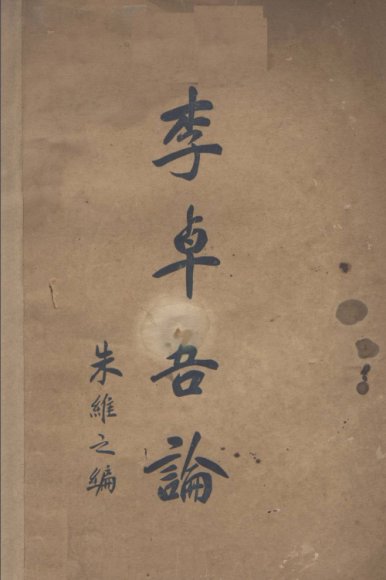 李卓吾論
朱維之編